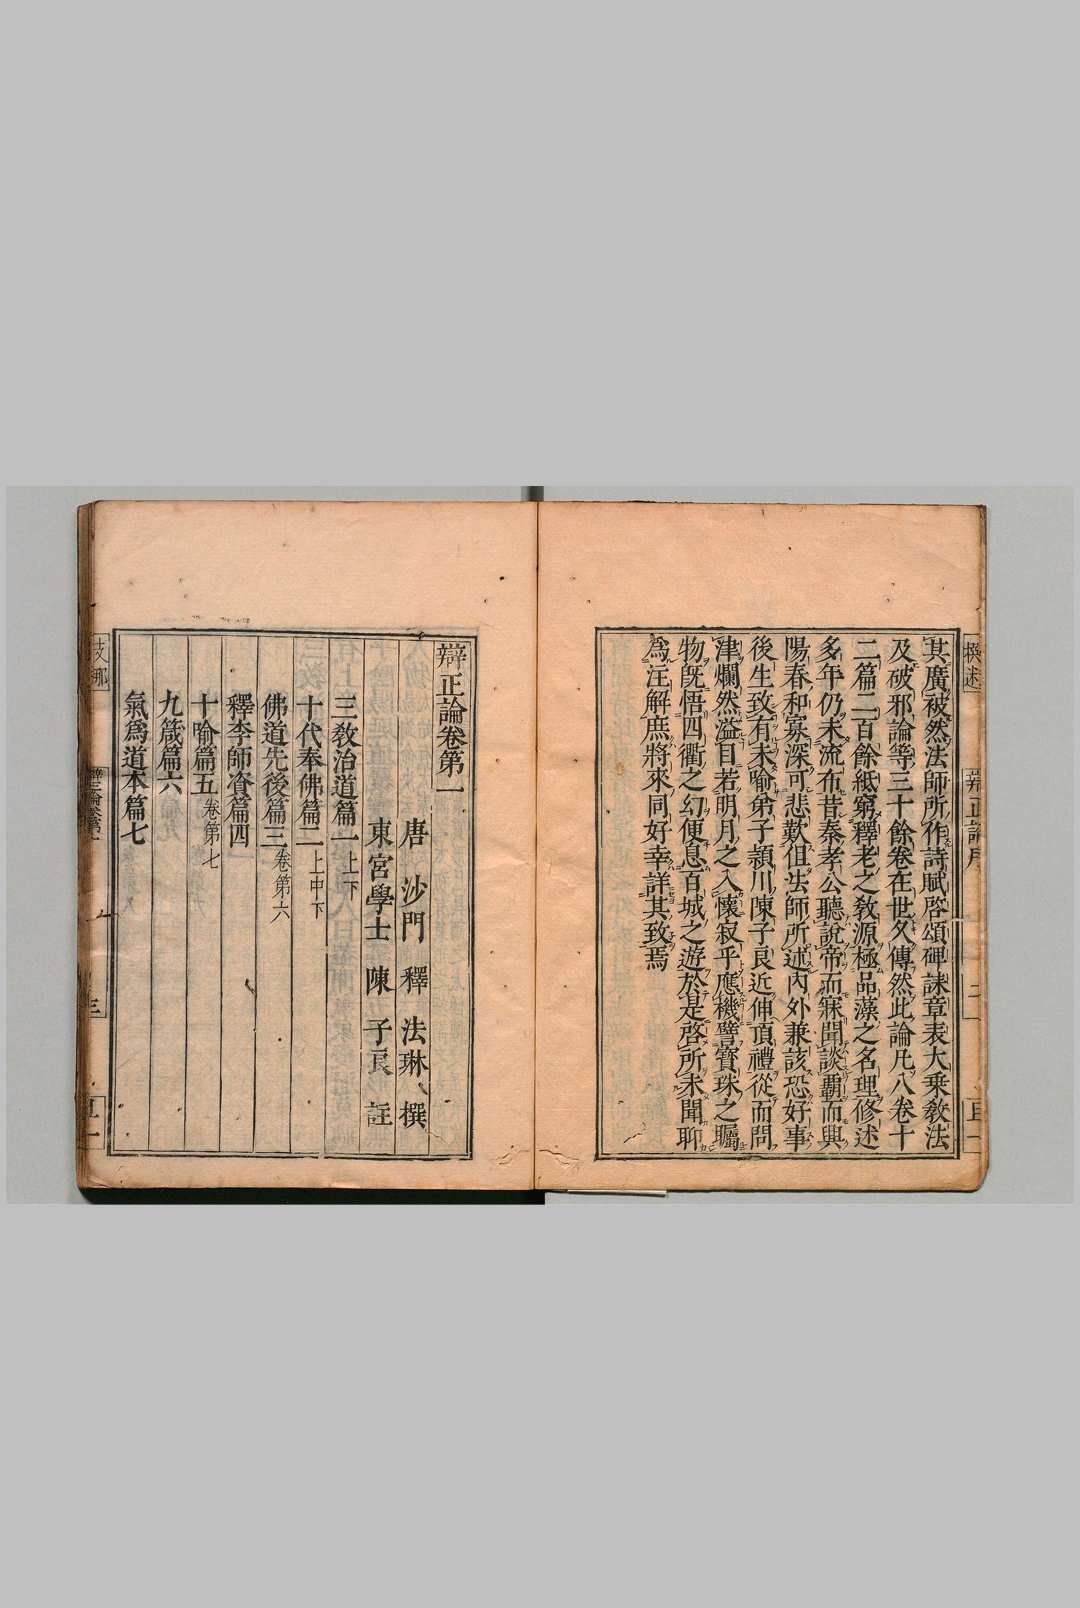 其廣被然法師所作詩賦啓頌碑誄章表大乘教法
及破邪論等三十餘卷在世久傳然此論凡八卷十
二篇二百餘紙窮釋老之教源極品藻之名理修述
多年仍未流布昔秦孝公聽說帝而寐聞談覇而興
陽春和寡深可悲歎但法師所述內外兼該恐好事
後生致有未喻弟子潁川陳子良近伸頂禮從而問
津爛然溢目若明月之入懷寂乎應機譬寶珠之矚
物旣悟四衢之幻便息百城之遊於是啓所未聞聊
爲注解庶將來同好幸詳其致焉
辯正論卷第一
唐 沙門 釋 法琳 撰
東宮學士 陳 子良 註
三教治道篇一上下
十代奉佛篇二上中下
佛道先後篇三卷第六
釋李師資篇四
十喻篇五卷第七
九箴篇六
氣爲道本篇七
支那
辯正論卷第一
三